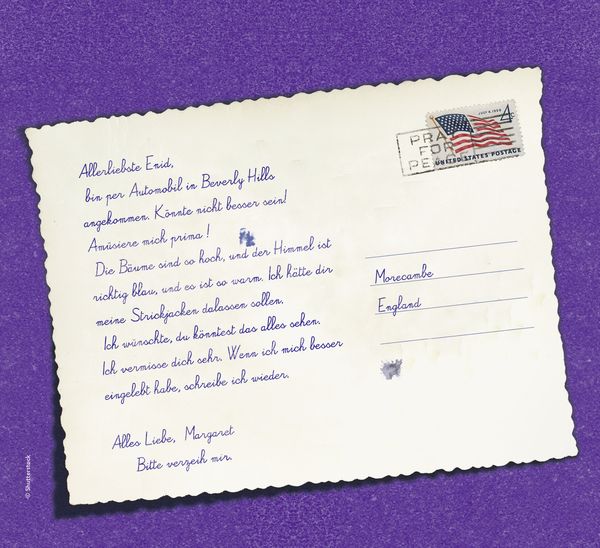 Allerliebste Enid,
bin per Automobil in Beverly Hills
angekommen. Könnte nicht besser sein!
Amüsiere mich prima!
Die Bäume sind so hoch, und der Himmel ist
richtig blau, und es ist so warm. Ich hätte dir
meine Strickjacken dalassen sollen.
Ich wünschte, du könntest das alles sehen.
Ich vermisse dich sehr. Wenn ich mich besser
eingelebt habe, schreibe ich wieder.
Alles Liebe, Margaret
Bitte verzeih mir.
PRA
FOR
PE
JULY 4, 1960
4¢
UNITED STATES POSTAGE
Morecambe
England
© Shutterstock